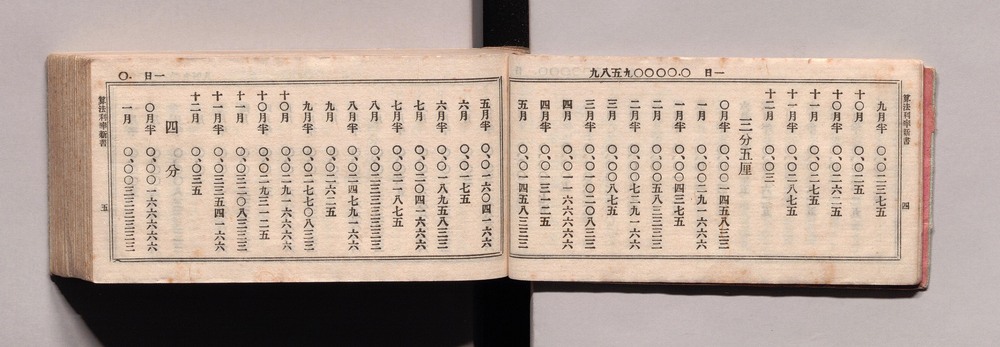 一日 〇.〇〇〇〇九五八九
算法利率新書 四
九月半 〇、〇二三七五
十〇月 〇、〇二五
十〇月半 〇、〇二六二五
十一月 〇、〇二七五
十一月半 〇、〇二八七五
十二月 〇、〇三
三分五厘
〇月半 〇、〇〇一四五八三三
一月 〇、〇〇二九一六六六
一月半 〇、〇〇四三七五
二月 〇、〇〇五八三三三三
二月半 〇、〇〇七二九一六六
三月 〇、〇〇八七五
三月半 〇、〇一〇二〇八三三
四月 〇、〇一一六六六六六
四月半 〇、〇一三一二五
五月 〇、〇一四五八三三三
一日 〇.
五月半 〇、〇一六〇四一六六
六月 〇、〇一七五
六月半 〇、〇一八九五八三三
七月 〇、〇二〇四一六六六
七月半 〇、〇二一八七五
八月 〇、〇二三三三三三三
八月半 〇、〇二四七九一六六
九月 〇、〇二六二五
九月半 〇、〇二七七〇八三三
十〇月 〇、〇二九一六六六六
十〇月半 〇、〇二九三一二五
十一月 〇、〇三二〇八三三三
十一月半 〇、〇三三五四一六六
十二月 〇、〇三五
四分
〇月半 〇、〇〇一六六六六六六
一月 〇、〇〇三三三三三三三
算法利率新書 五